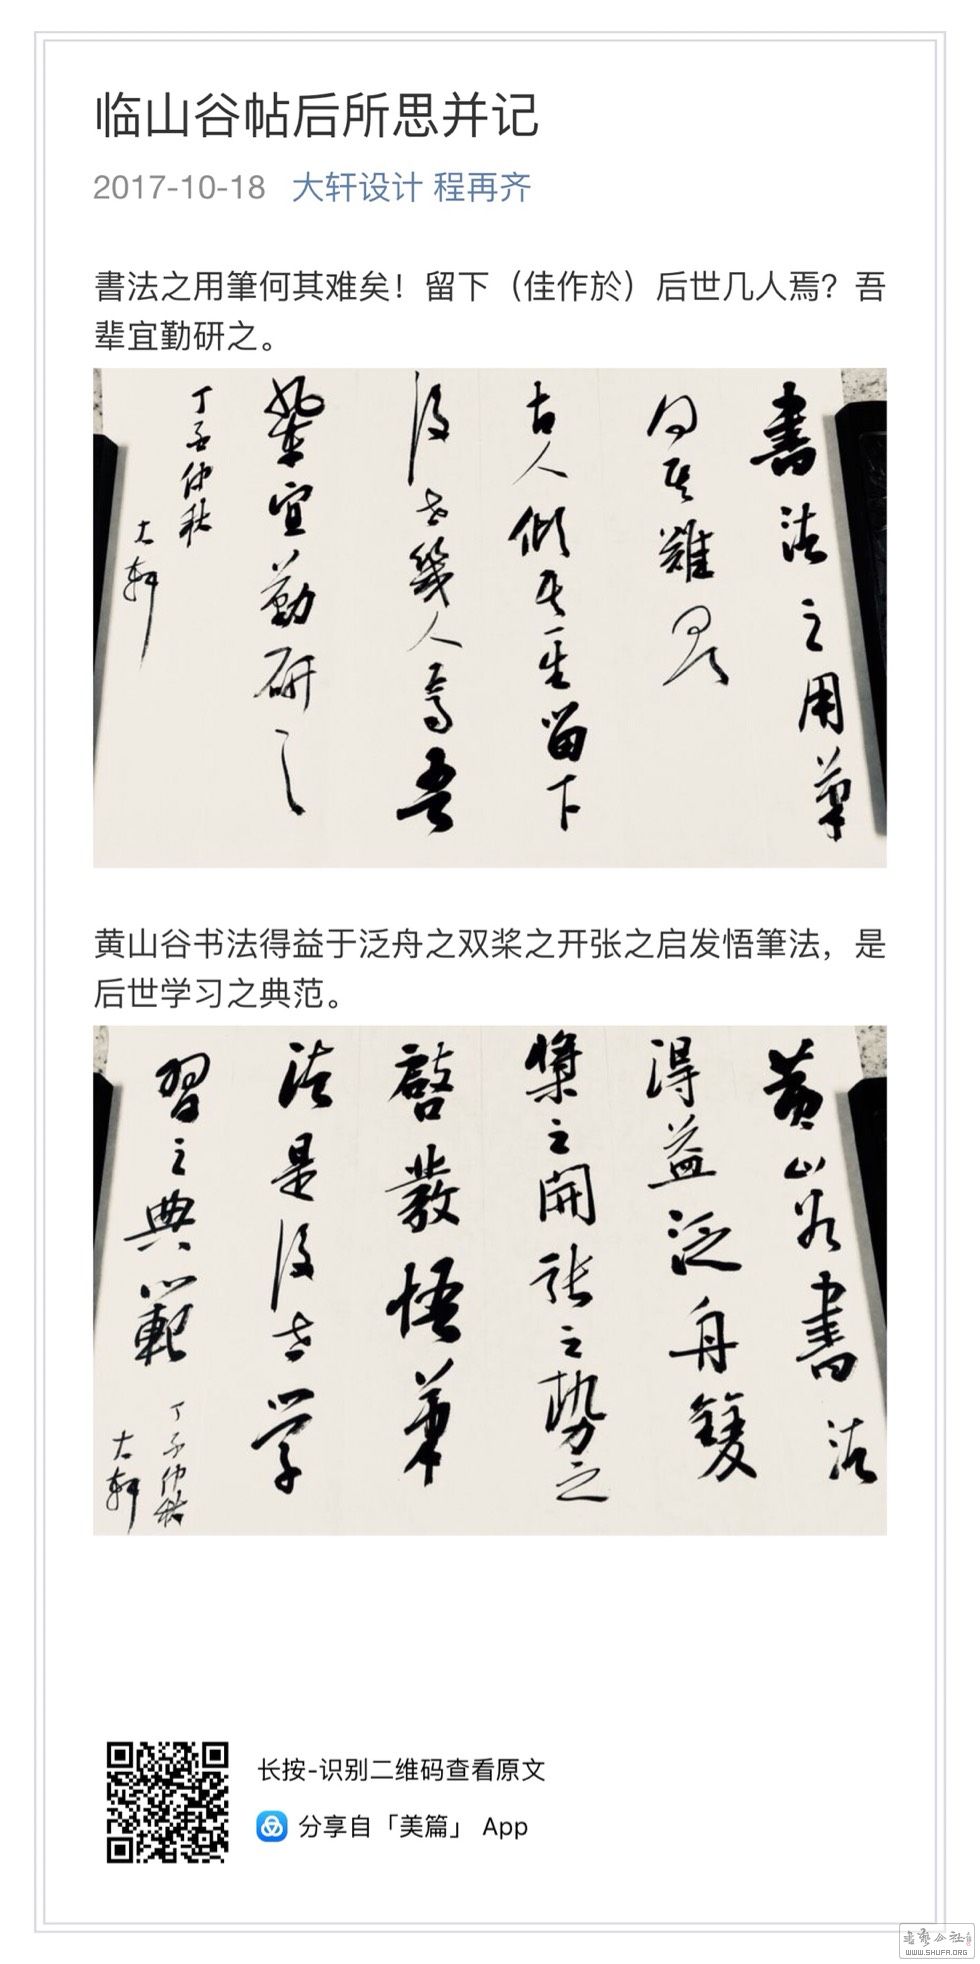 临山谷帖后所思并记
2017-10-18 大轩设计 程再齐
書法之用筆何其难矣！留下（佳作於）后世几人焉？吾
辈宜勤研之。
書法之用筆
何其難矣
古人傾其一生留下
後世幾人焉吾
輩宜勤研之
丁酉仲秋
大軒
黄山谷书法得益于泛舟之双桨之开张之启发悟筆法，是
后世学习之典范。
黄山谷書法
得益泛舟雙
槳之開張之勢之
啓發悟筆
法是後世学
習之典範
丁酉仲秋
大軒
长按-识别二维码查看原文
分享自「美篇」 App
書藝公社
www.SHUFA.ORG